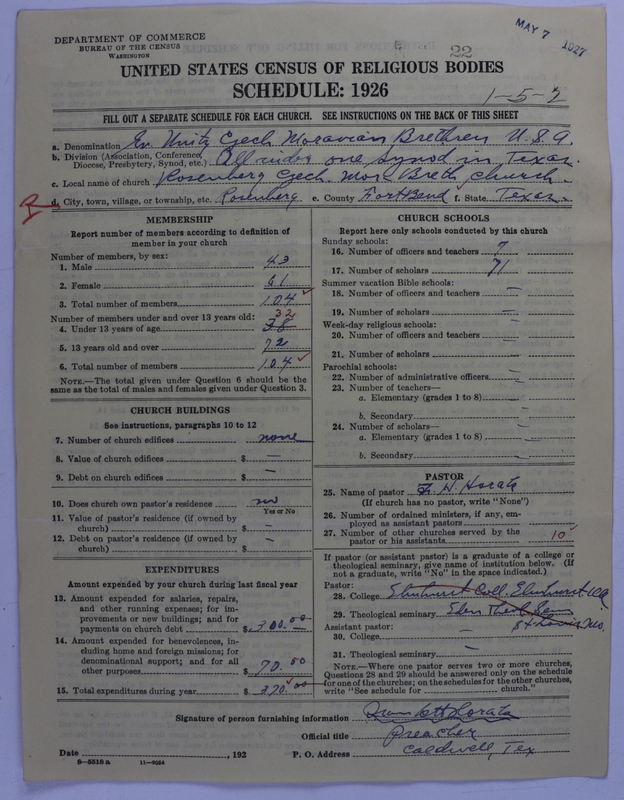 DEPARTMENT OF COMMERCE
BUREAU OF THE CENSUS
WASHINGTON
22
MAY 7 1927
UNITED STATES CENSUS OF RELIGIOUS BODIES
SCHEDULE: 1926
1-5-2
FILL OUT A SEPARATE SCHEDULE FOR EACH CHURCH. SEE INSTRUCTIONS ON THE BACK OF THIS SHEET
a. Denomination Ev. Unity Czech Moravian Brethren U.S.A.
b. Division (Association, Conference, Diocese, Presbytery, Synod, etc.) All under one Synod in Texas.
c. Local name of church Rosenberg Czech. Mor. Breth. Church.
d. City, town, village, or township, etc. Rosenberg e. County Fort Bend f. State Texas
MEMBERSHIP
Report number of members according to definition of
member in your church
Number of members, by sex:
1. Male 43
2. Female 61
3. Total number of members 104
Number of members under and over 13 years old: 32
4. Under 13 years of age 38
5. 13 years old and over 72
6. Total number of members 104
NOTE.—The total given under Question 6 should be the
same as the total of males and females given under Question 3.
CHURCH BUILDINGS
See instructions, paragraphs 10 to 12
7. Number of church edifices none
8. Value of church edifices $ —
9. Debt on church edifices $ —
10. Does church own pastor's residence no
Yes or No
11. Value of pastor's residence (if owned by
church) $ —
12. Debt on pastor's residence (if owned by
church) $ —
EXPENDITURES
Amount expended by your church during last fiscal year
13. Amount expended for salaries, repairs,
and other running expenses; for im-
provements or new buildings; and for
payments on church debt $ 300.00
14. Amount expended for benevolences, in-
cluding home and foreign missions; for
denominational support; and for all
other purposes $ 70.00
15. Total expenditures during year $ 370.00
CHURCH SCHOOLS
Report here only schools conducted by this church
Sunday schools:
16. Number of officers and teachers 7
17. Number of scholars 71
Summer vacation Bible schools:
18. Number of officers and teachers —
19. Number of scholars —
Week-day religious schools:
20. Number of officers and teachers —
21. Number of scholars —
Parochial schools:
22. Number of administrative officers —
23. Number of teachers—
a. Elementary (grades 1 to 8) —
b. Secondary —
24. Number of scholars—
a. Elementary (grades 1 to 8) —
b. Secondary —
PASTOR
25. Name of pastor
(If church has no pastor, write "None")
26. Number of ordained ministers, if any, em-
ployed as assistant pastors
27. Number of other churches served by the
pastor or his assistants 10
If pastor (or assistant pastor) is a graduate of a college or
theological seminary, give name of institution below. (If
not a graduate, write "No" in the space indicated.)
Pastor:
28. College Elmhurst Coll. Elmhurst Ill.
29. Theological seminary Eden Theol. Sem
Assistant pastor: St Louis Mo.
30. College —
31. Theological seminary —
NOTE.—Where one pastor serves two or more churches,
Questions 28 and 29 should be answered only on the schedule
for one of the churches; on the schedules for the other churches,
write "See schedule for church."
Signature of person furnishing information
Official title preacher
Date , 192 P. O. Address Caldwell, Tex
8-5518a 11-9054